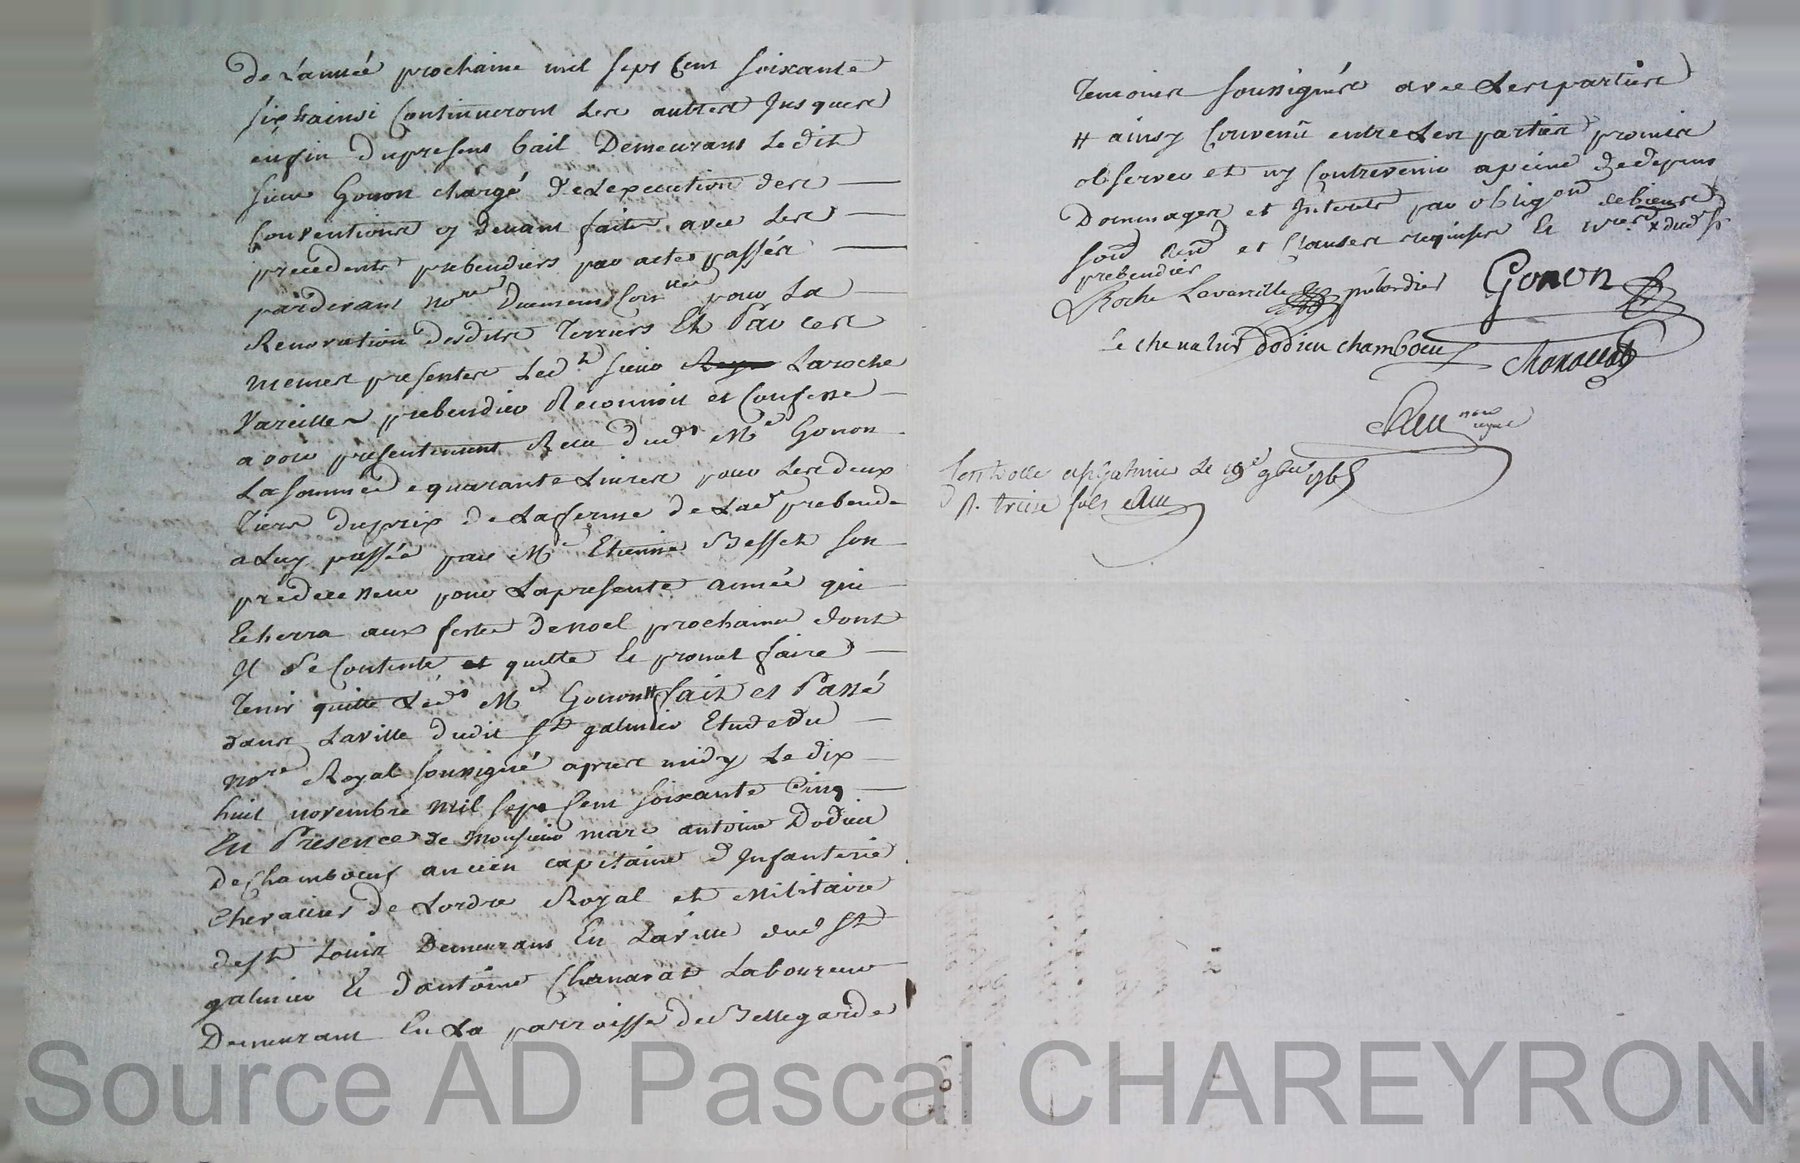 de L'année prochaine mil sept Cent soixante
six & ainsi Continueront Les autres Jusques
enfin du present bail Demeurans Ledit
sieur Gonon chargé de Lexecution des
Conventions cy devant faites avec Les
precedents prebendiers par actes passés
pardevant no.re Du mesme pour La
Renovation desdits Terriers Et Par ces
mesmes presentes Led.t sieur Laroche
Vareilles prebendier Reconnoit et Confesse
avoir presentement Reçu dud.t M.e Gonon
La somme de quarante Livres pour Les deux
Tiers du prix de La ferme de Lad.e prebende
a Luy passée par M.e Etienne Besset son
predecesseur pour La presente année qui
Echerra aux festes de noel prochaine dont
Il Se Contente et quitte Et promet faire
Tenir quitte Led.t M.e Gonon # fait et Passé
dans Laville dudit S.t galmier Etude du
no.re Royal soussigné apres midy Le dix
huit novembre mil sept Cent soixante Cinq
En Presence de Monsieur marc antoine Dodieu
De Chamboeuf ancien capitaine d'Infanterie
chevallier de Lordre Royal et Militaire
de St Louis Demeurans En La ville dud. St
galmier Et d'antoine Chanavat Laboureur
Demeurant En La parroisse de Bellegarde
Temoins soussignés avec Les parties
# ainsy Convenû entre Les parties promis
observer et ny Contrevenir a peine de depens
Dommages et Interets par oblig.on de biens
soû.d ren.d et Clauses requises
prebendier
LRoche Lavareille prébendier Gonon
Le chevalier dodieu chamboeuf
Chanavat
no.re royal
Controlle a St Galmier Le 19.e 9bre 1765
R. treize sols
Source AD Pascal CHAREYRON